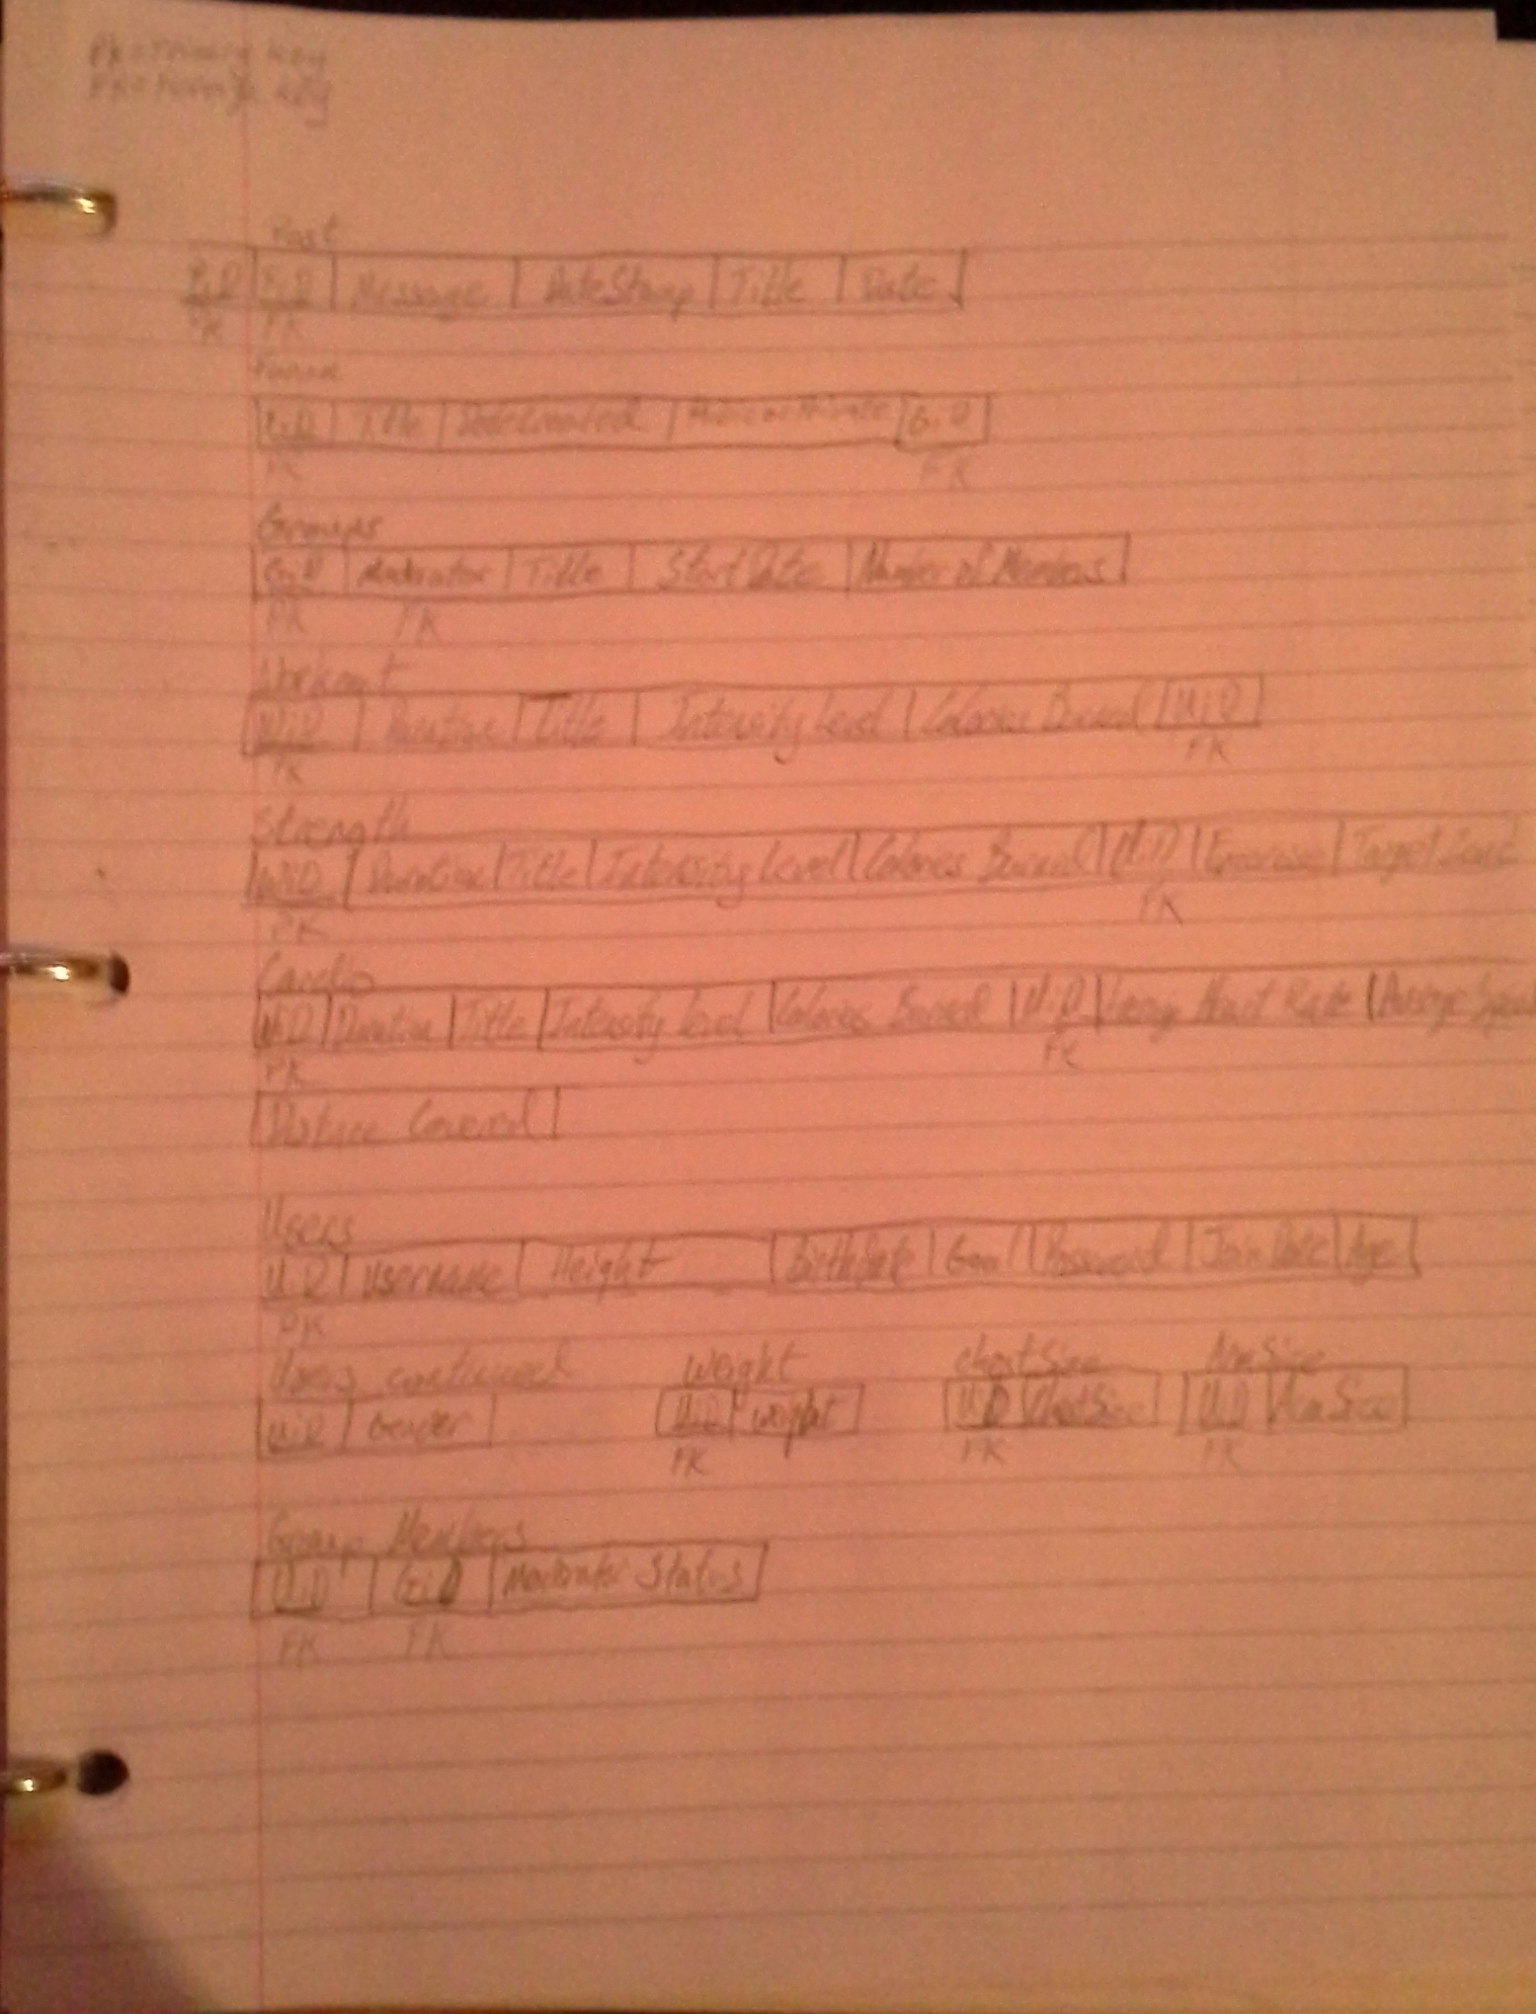 PK = Primary Key
FK = Foreign Key
Post
P.iD F.iD Message DateStamp Title Date
PK FK
Forum
F.iD Title DateCreated Public or Private G.iD
PK FK
Groups
G.iD Moderator Title Start Date Number of Members
PK FK
Workout
W.iD Duration Title Intensity Level Calories Burned U.iD
PK FK
Strength
W.iD Duration Title Intensity Level Calories Burned U.iD Exercise Target
PK FK
Cardio
W.iD Duration Title Intensity Level Calories Burned U.iD Average Heart Rate Average
PK FK
Distance Covered
Users
U.iD Username Height Birthdate Goal Password Join Date Age
PK
Users continued Weight ChestSize ArmSize
U.iD Gender U.iD weight U.iD ChestSize U.iD ArmSize
FK FK FK
Group Members
U.iD G.iD Moderator Status
FK FK